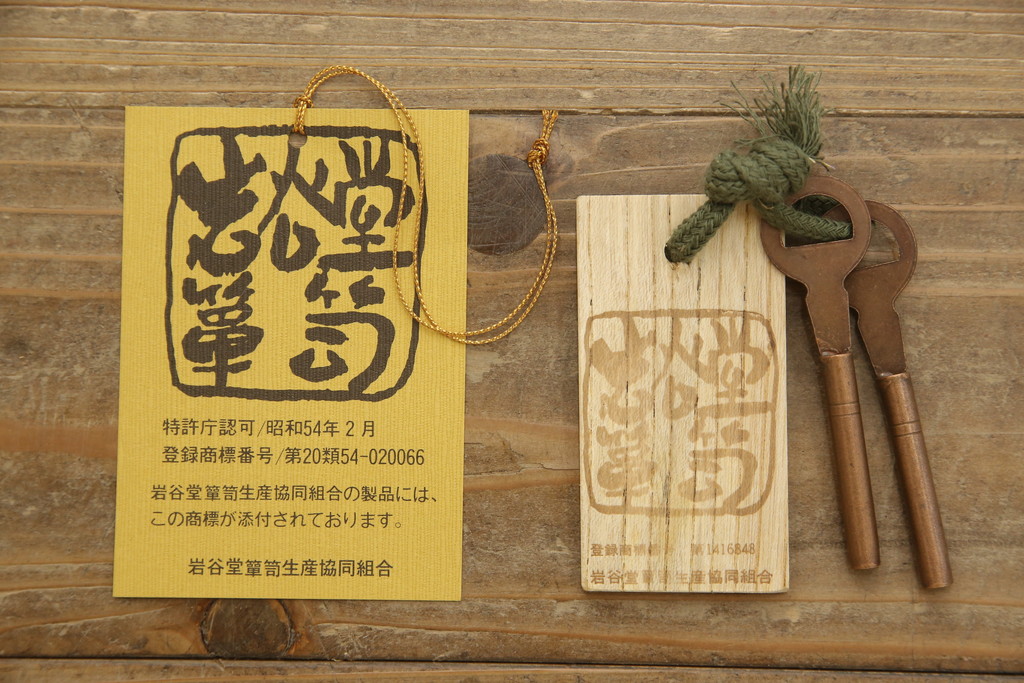 岩谷堂簞笥
特許庁認可/昭和54年2月
登録商標番号/第20類54-020066
岩谷堂簞笥生産協同組合の製品には、
この商標が添付されております。
岩谷堂簞笥生産協同組合
岩谷堂簞笥
登録商標番号 第1416848
岩谷堂簞笥生産協同組合